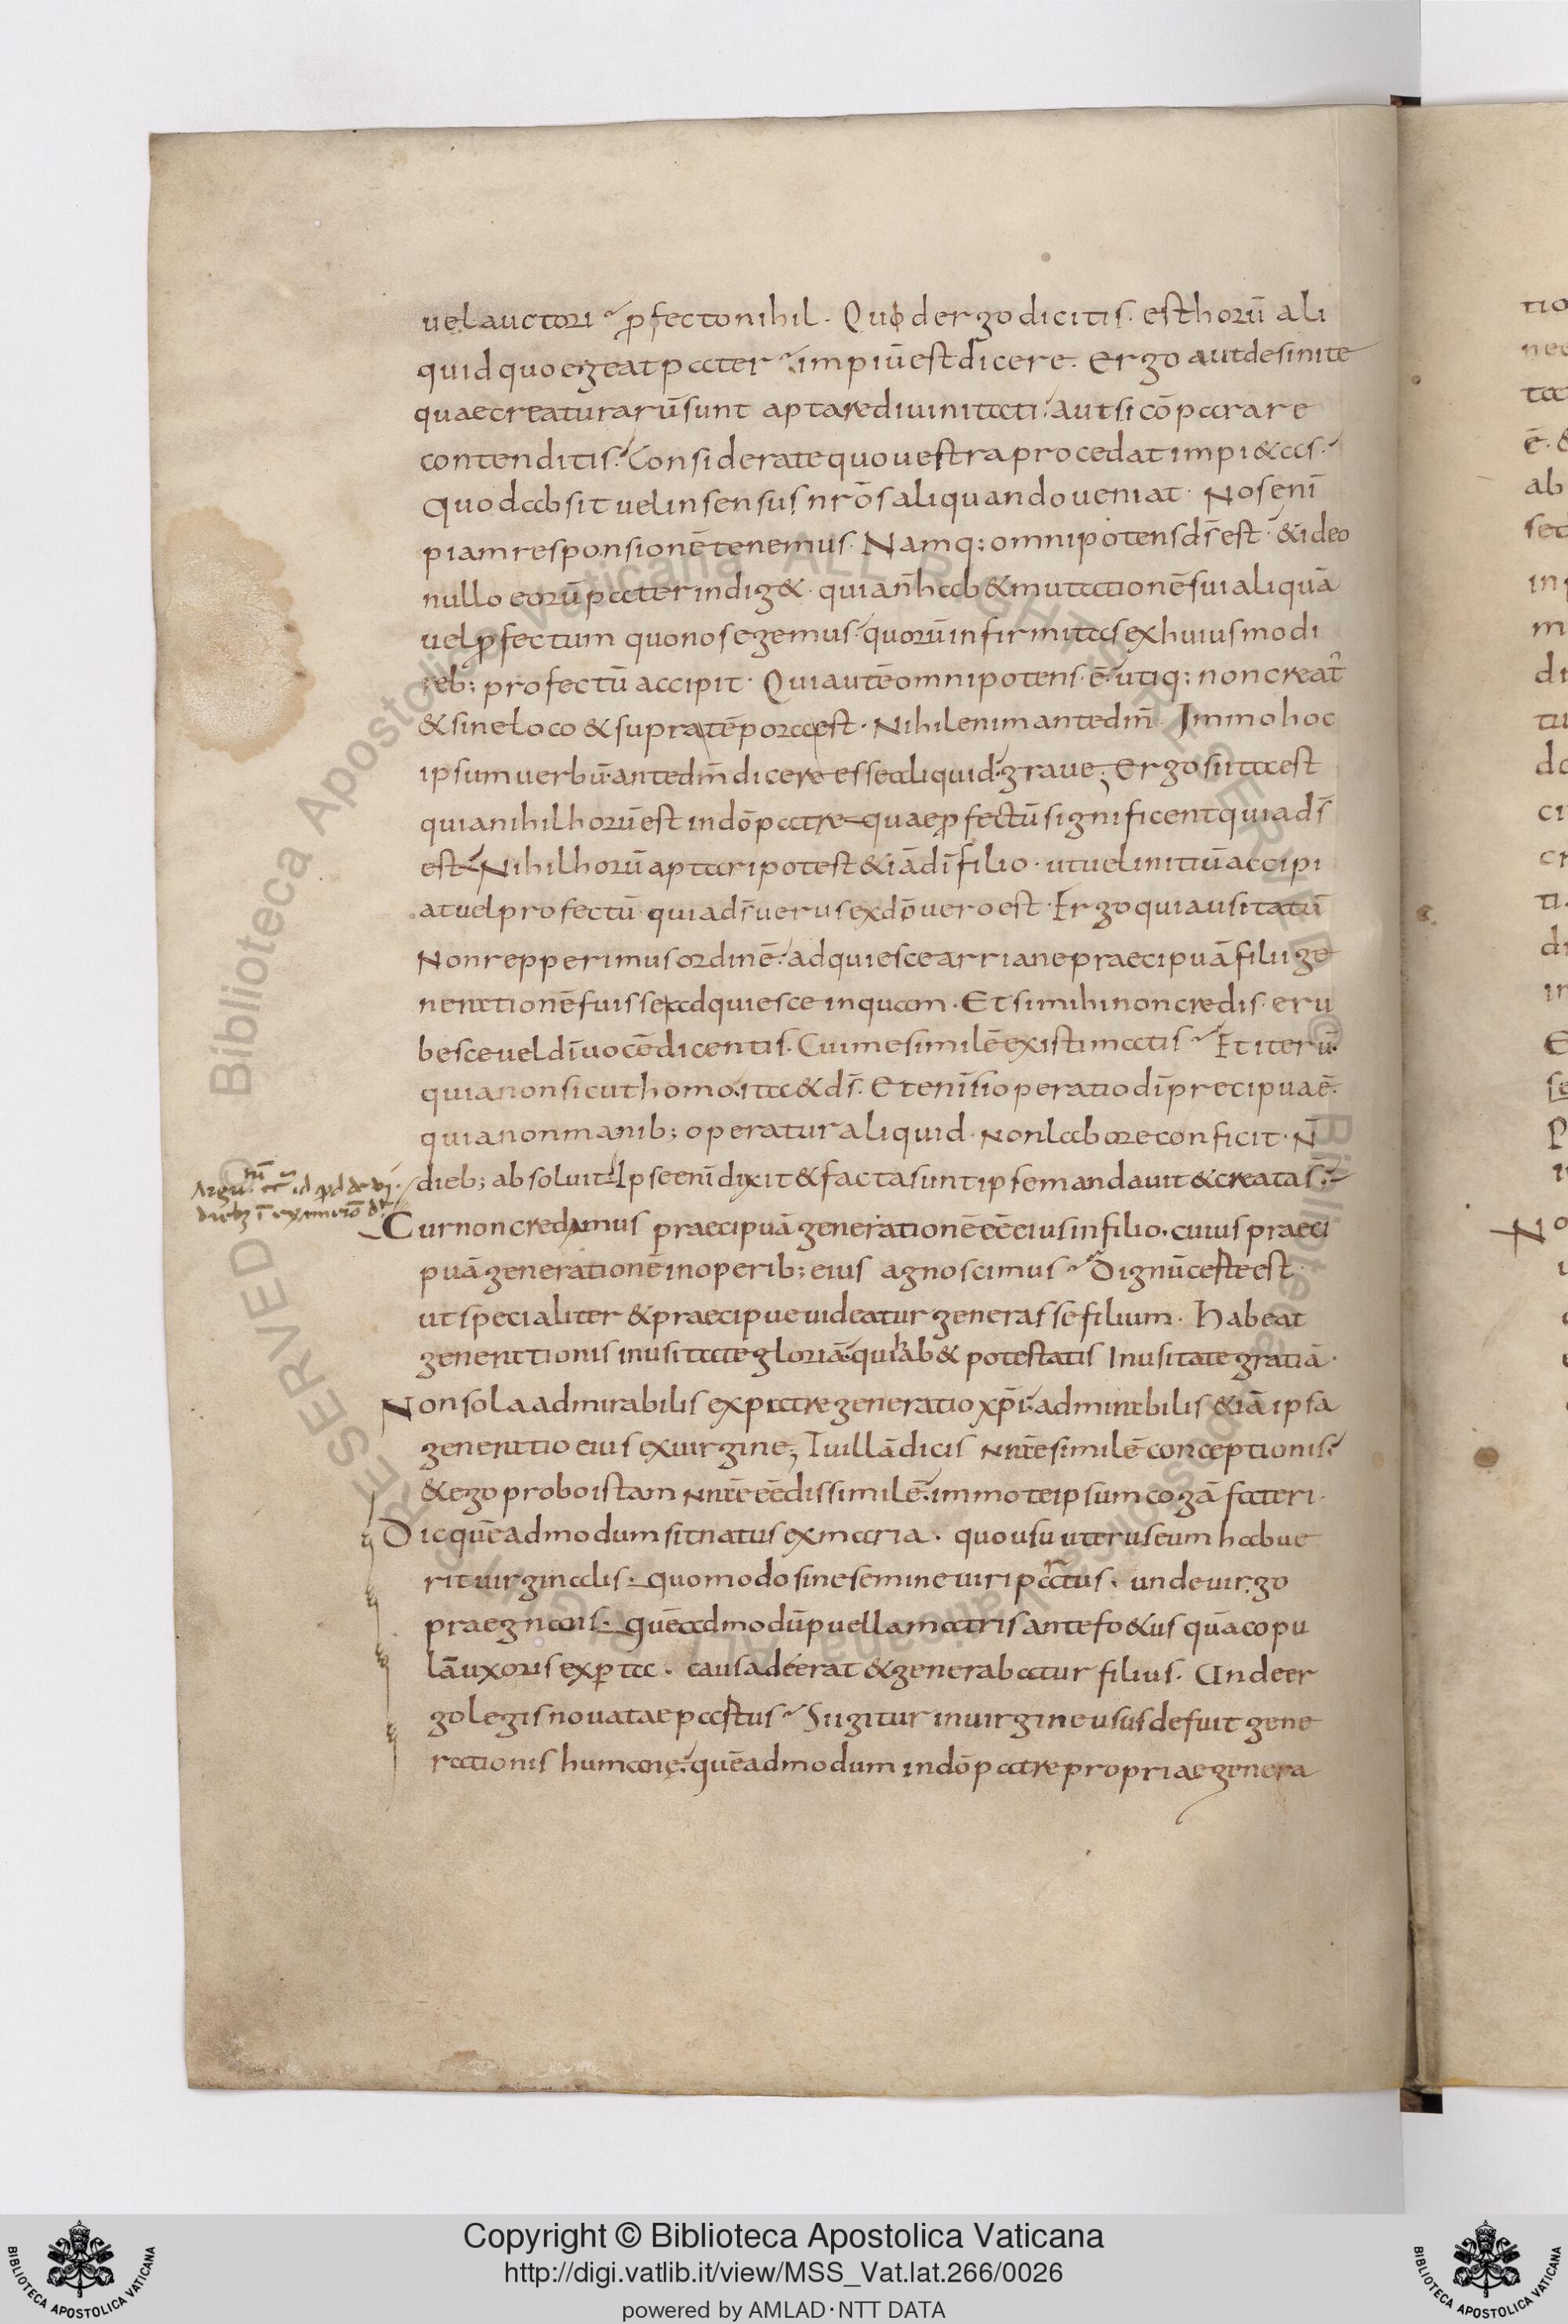 uel auctori ꝓfecto nihil. Quod ergo dicitis. est horū ali
quid quo egeat pater impiū est dicere. Ergo aut desinite
quae creaturarū sunt aptare diuinitati. aut si cōparare
contenditis. Considerate quo uestra procedat impi&as.
Quod absit uel in sensus nrōs aliquando ueniat. Nos enī
piam responsionē tenemus. Namq; omnipotens ds̄ est. & ideo
nullo eorū pater indig& quia n̄ hab& mutationē sui aliquā
uel ꝓfectum quo nos egemus. quorū infirmitas ex huiusmodi
reb; profectū accipit. Qui autē omnipotens ē. utiq; non creat̄
& sine loco & supra tēpora est. Nihil enim ante dm̄. Immo hoc
ipsum uerbū. ante dm̄ dicere esse aliquid. graue; Ergo si ita est
quia nihil horū est in dō patre quae ꝓfectū significent quia ds̄
est Nihil horū aptari potest &iā dī filio. ut uel initiū accipi
at uel profectū quia ds̄ uerus ex dō uero est. Ergo quia usitatū
Non repperimus ordinē. adquiesce arriane praecipuā filii ge
nerationē fuisse adquiesce inquam. Et si mihi non credis eru
besce uel dī uocē dicentis. Cui me similē existimatis Et iterū.
quia non sicut homo. ita & ds̄. Etenī si operatio dī precipua ē.
quia non manib; operatur aliquid. non labore conficit. N̄
dieb; absoluit. Ipse enī dixit & facta sunt ipse mandauit & creata s̄.
Cur non credamus praecipuā generationē eē eius in filio. cuius praeci
puā generationē in operib; eius agnoscimus Dignū certe est
ut specialiter & praecipue uideatur generasse filium. Habeat
generationis inusitate gloriā. qui hab& potestatis Inusitate gratiā.
Non sola admirabilis ex patre generatio xp̄i. admirabilis &iā ipsa
generatio eius ex uirgine; Tu illā dicis nr̄ae similē conceptionis.
& ego probo istam nr̄ae eē dissimilē. immo te ipsum cogā fateri.
Dic quēadmodum sit natus ex maria. quo usu uterus eum habue
rit uirginalis. quomodo sine semine uiri partus. unde uirgo
praegnans. quēadmodū puella matris ante fo&us quā copu
lā uxoris exꝑta. causa deerat & generabatur filius. Unde er
go legis nouatae pastus Si igitur in uirgine usus defuit gene
rationis humanę. quēadmodum in dō patre propriae genera
Copyright © Biblioteca Apostolica Vaticana
http://digi.vatlib.it/view/MSS_Vat.lat.266/0026
powered by AMLAD·NTT DATA